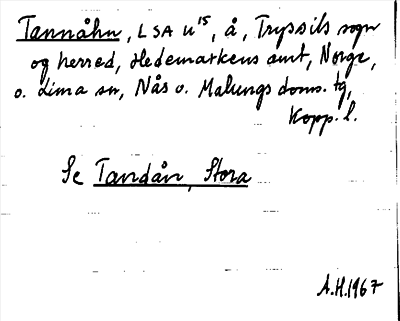 Tannåhn, LSA U¹⁵, å, Tryssils sogn
og herred, Hedemarkens amt, Norge,
o. Lima sn, Nås o. Malungs doms. tg,
Kopp. l.
Se Tandån, Stora
A.H. 1967